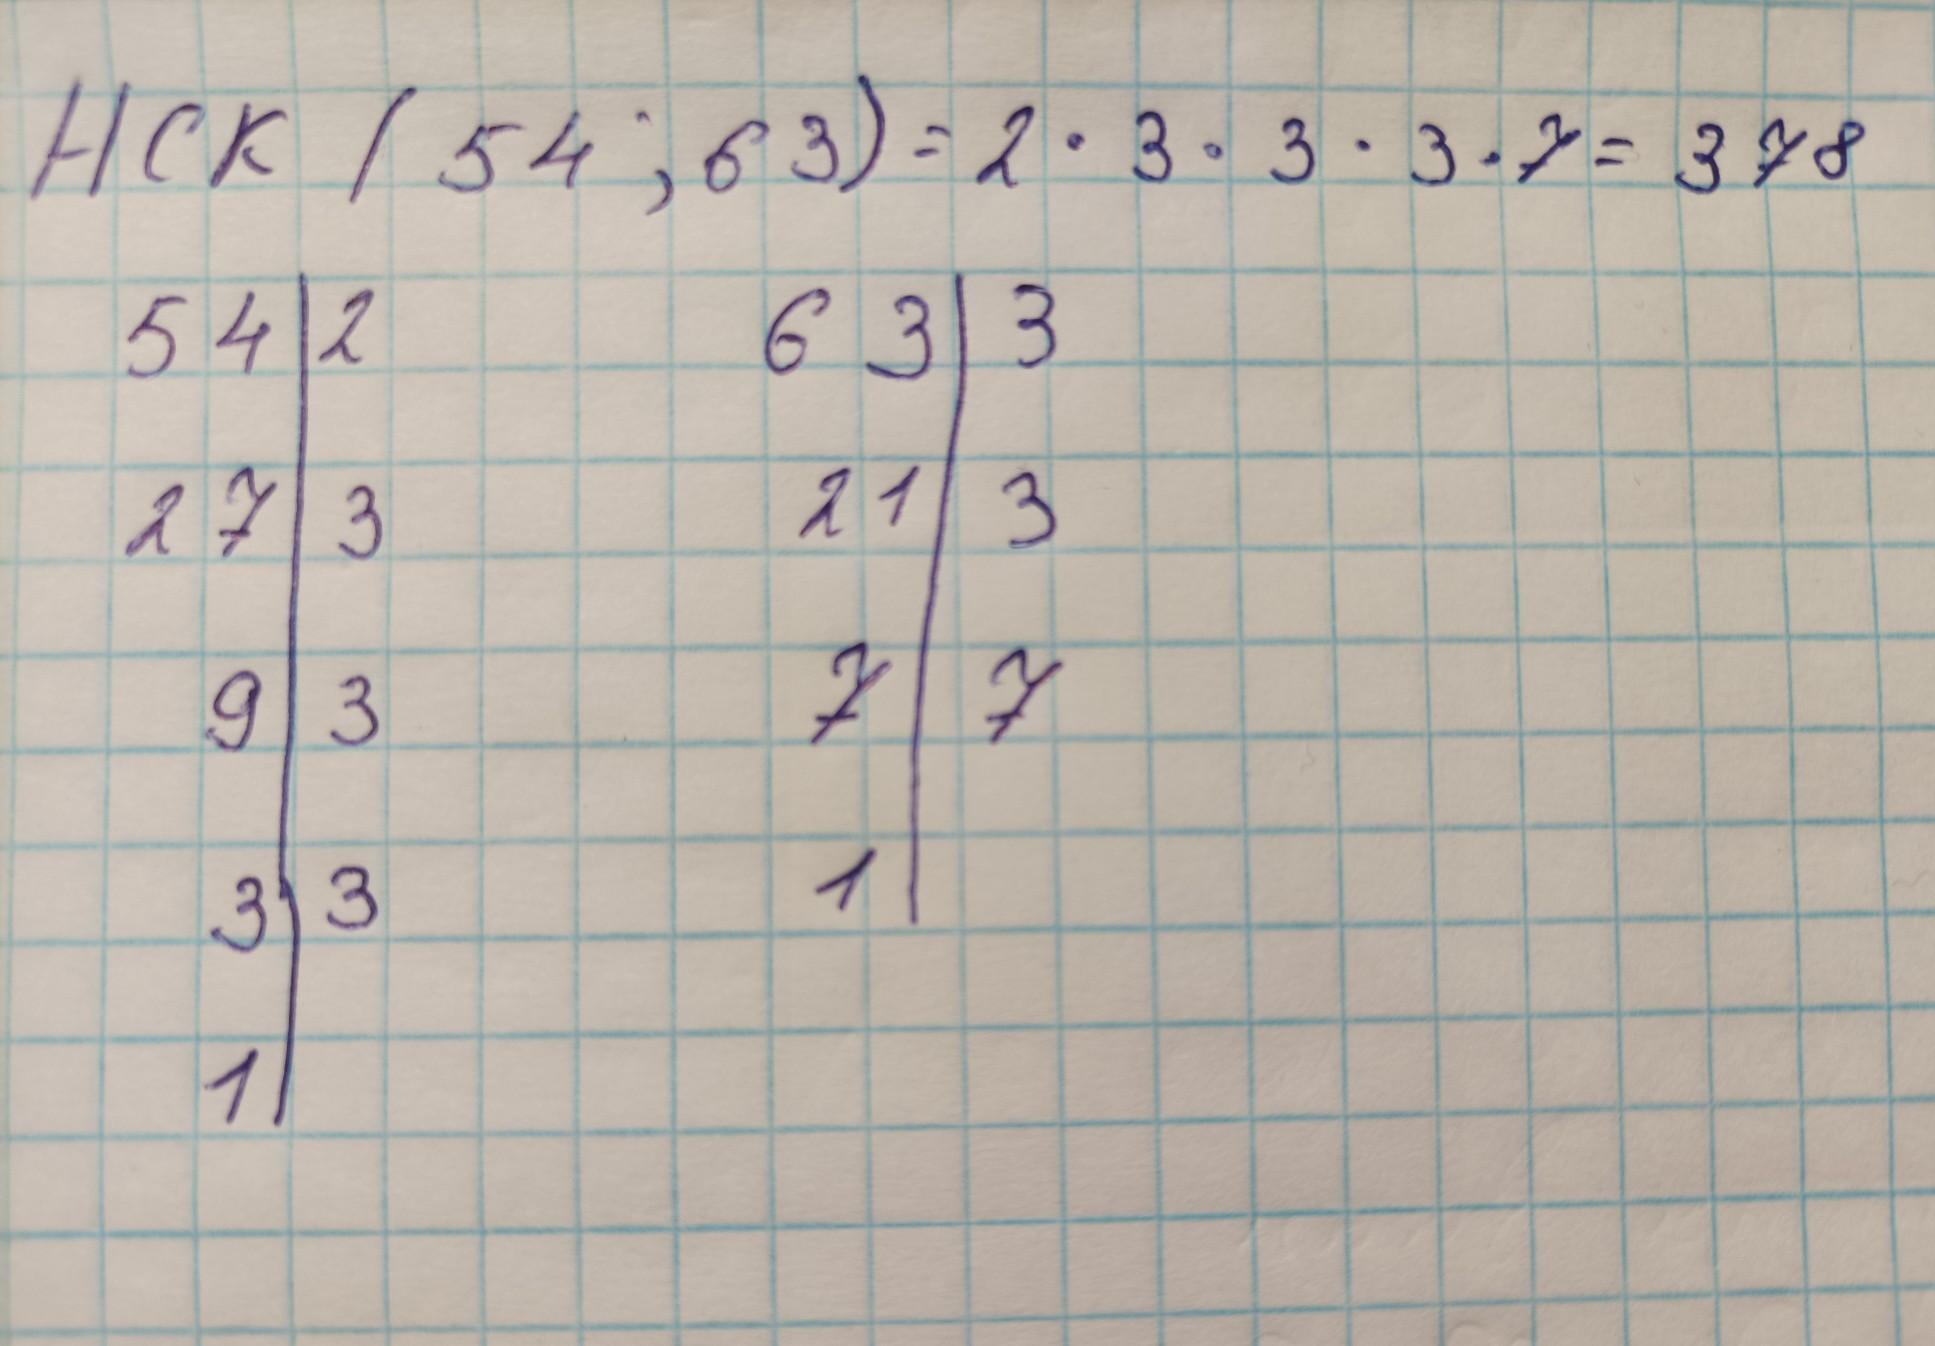 НСК (54; 63) = 2 · 3 · 3 · 3 · 7 = 378
54 | 2
27 | 3
9 | 3
3 | 3
1 |
63 | 3
21 | 3
7 | 7
1 |